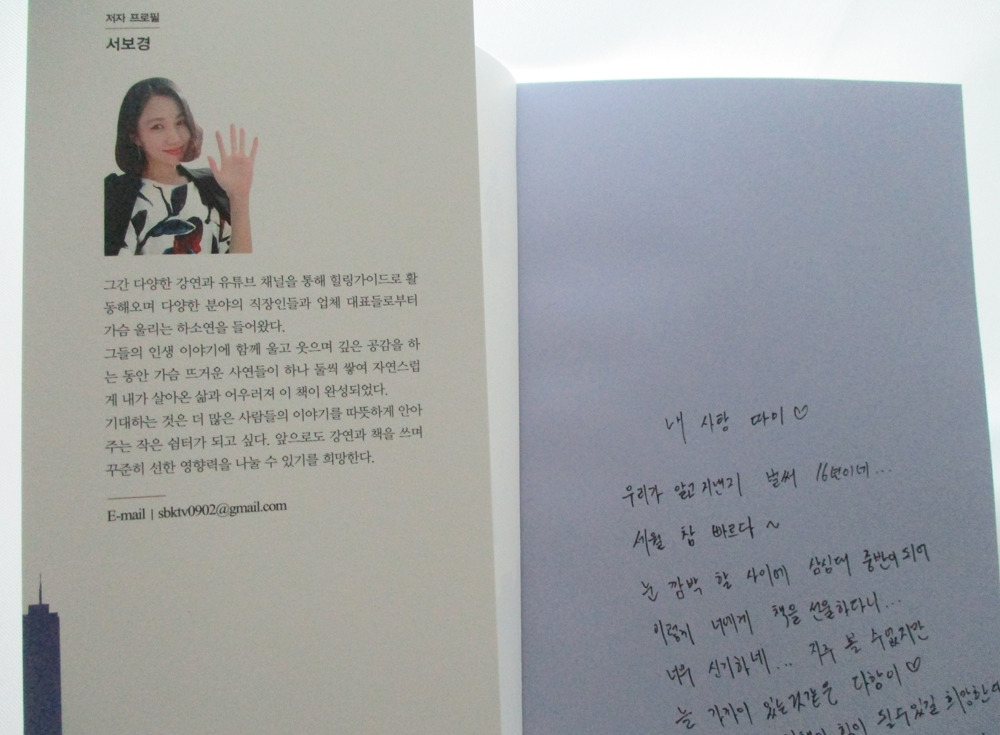 저자 프로필
서보경
그간 다양한 강연과 유튜브 채널을 통해 힐링가이드로 활
동해오며 다양한 분야의 직장인들과 업체 대표들로부터
가슴 울리는 하소연을 들어왔다.
그들의 인생 이야기에 함께 울고 웃으며 깊은 공감을 하
는 동안 가슴 뜨거운 사연들이 하나 둘씩 쌓여 자연스럽
게 내가 살아온 삶과 어우러져 이 책이 완성되었다.
기대하는 것은 더 많은 사람들의 이야기를 따뜻하게 안아
주는 작은 쉼터가 되고 싶다. 앞으로도 강연과 책을 쓰며
꾸준히 선한 영향력을 나눌 수 있기를 희망한다.
E-mail | sbktv0902@gmail.com
내 사랑 따이 ♡
우리가 알고 지낸지 벌써 16년이네...
세월 참 빠르다 ~
눈 깜박 할 사이에 삼십대 중반이 되어
이렇게 너에게 책을 선물하다니...
너무 신기하네... 자주 볼 수 없지만
늘 가까이 있는것같은 다항이 ♡
힘이 될수있길 희망한다